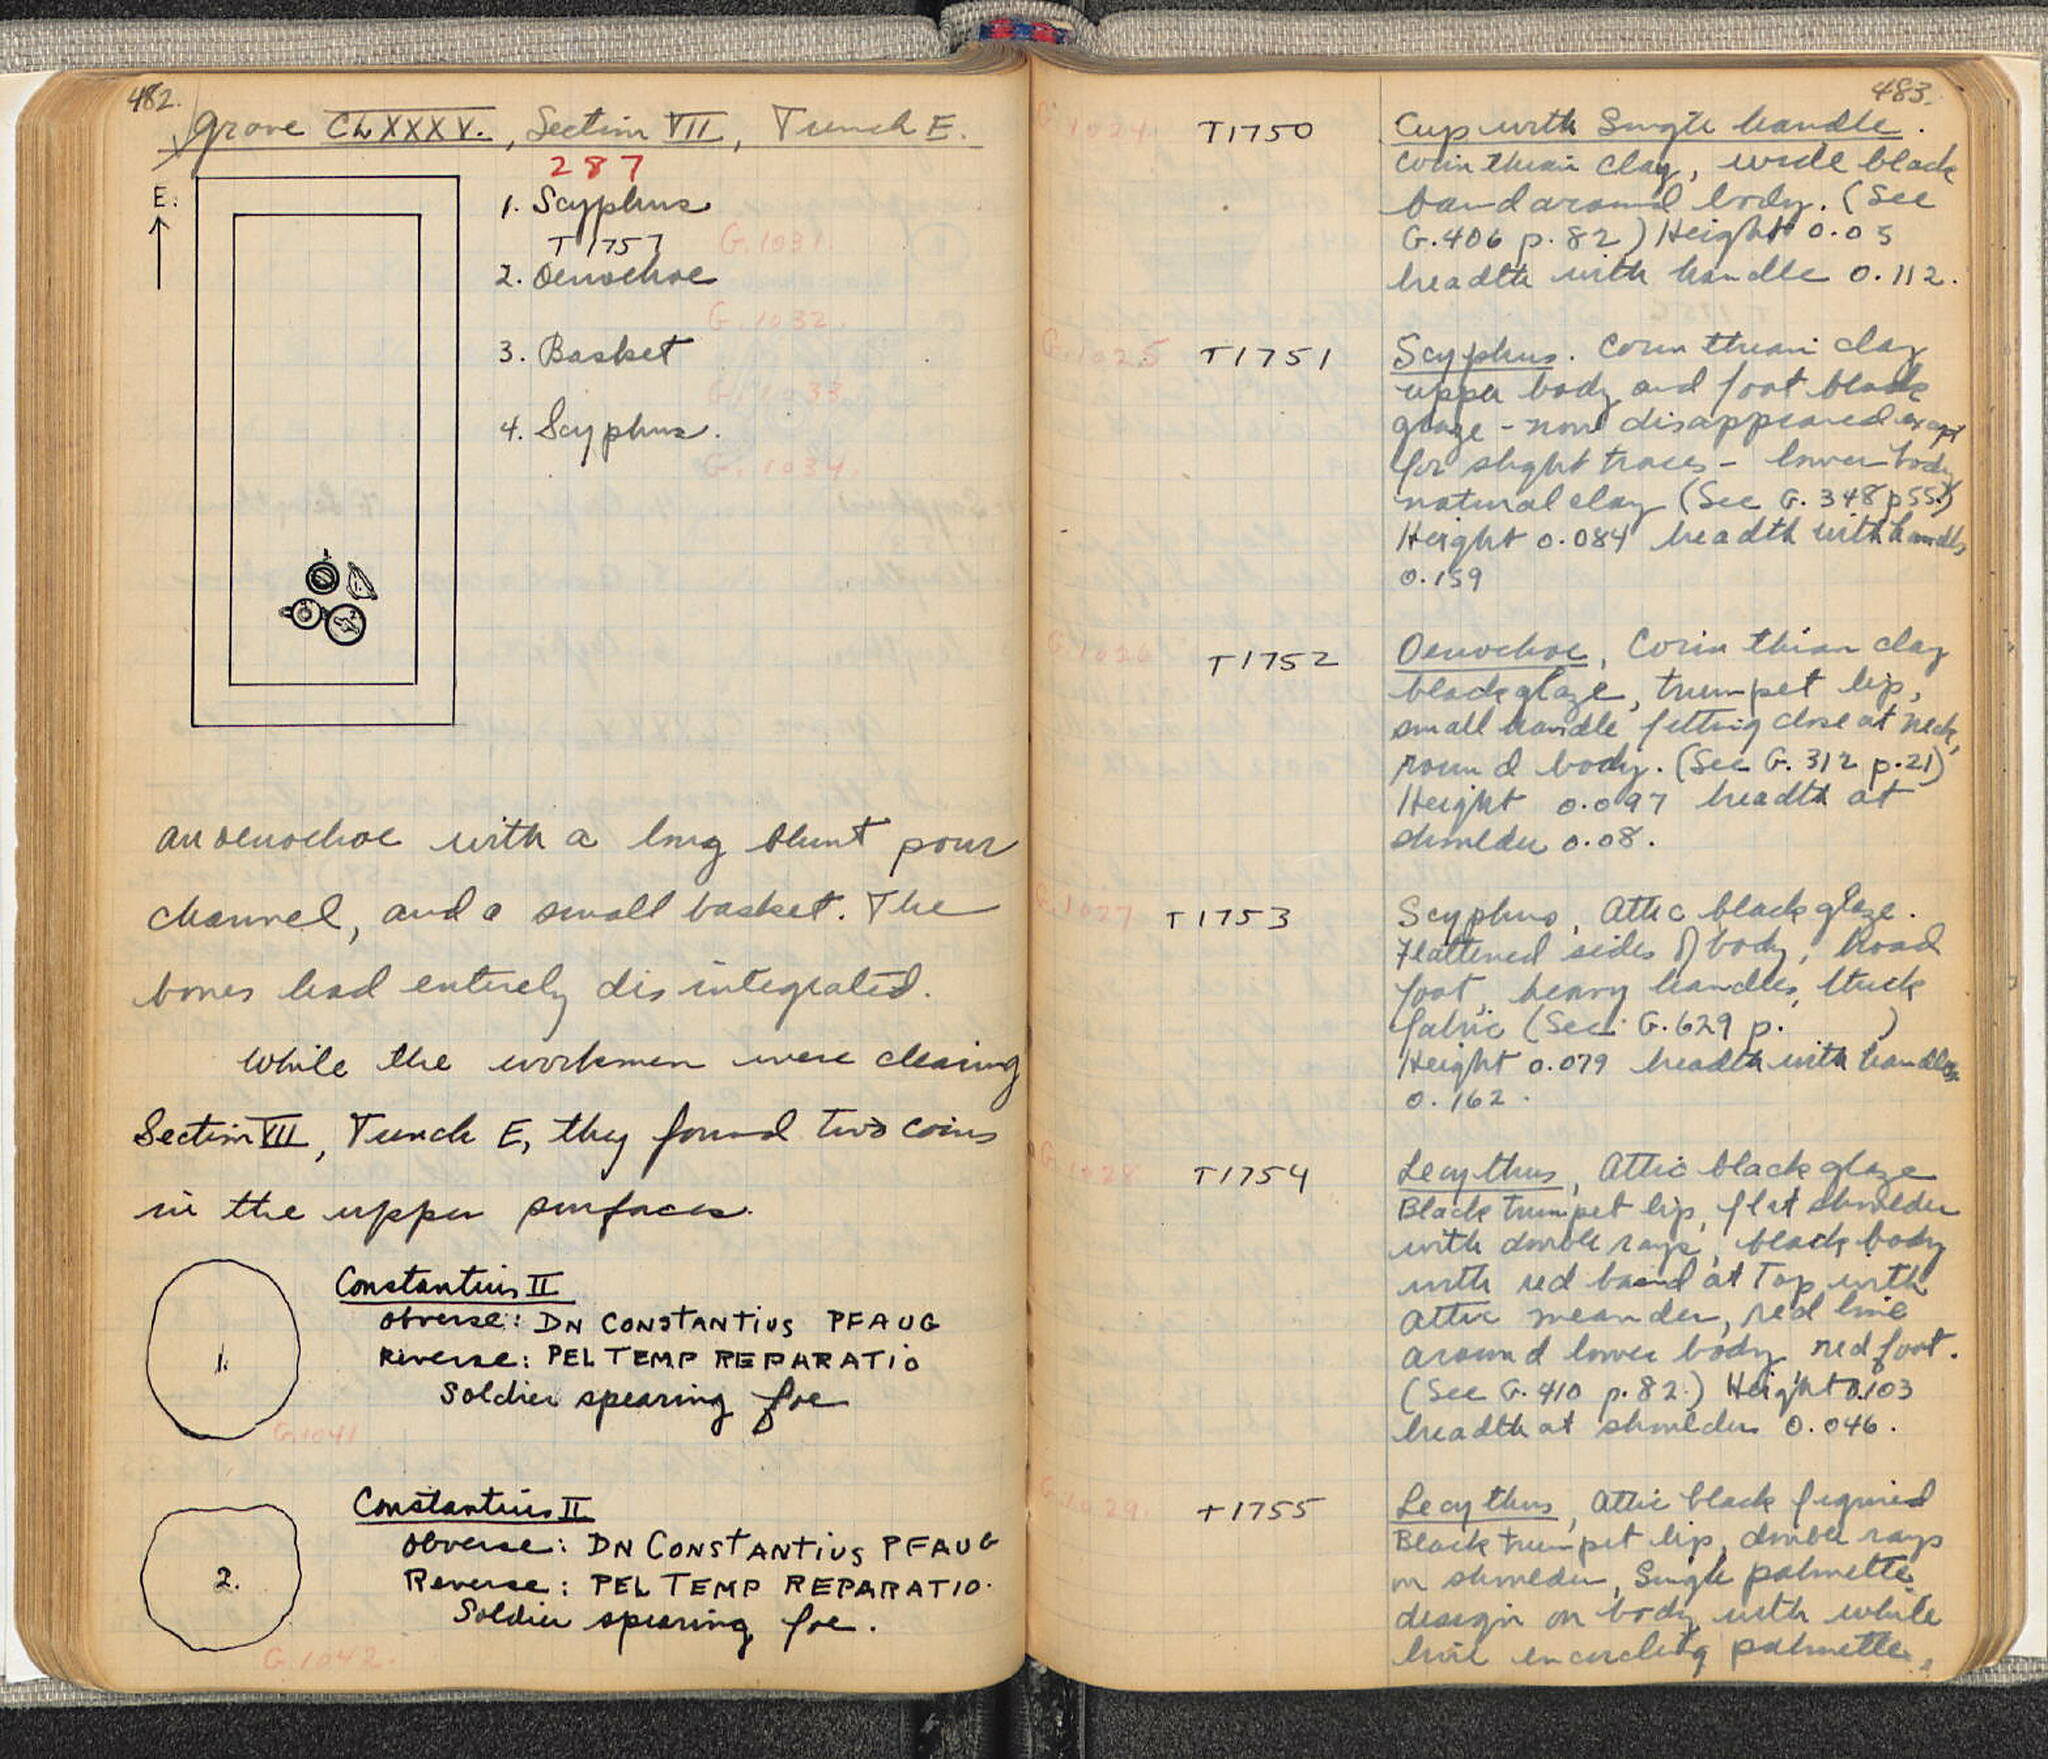 482.
Grave CLXXXV., Section VII, Trench E.
287
E.
1. Scyphus
T1757 G.1031.
2. Oenochoe
G.1032.
3. Basket
G.1033
4. Scyphus.
G.1034.
an oenochoe with a long blunt pour
channel, and a small basket. The
bones had entirely disintegrated.
While the workmen were clearing
Section VII, Trench E, they found two coins
in the upper surfaces.
1.
Constantius II
Obverse: DN CONSTANTIUS PFAUG
Reverse: PEL TEMP REPARATIO
Soldier spearing foe
G.1041
2.
Constantius II
Obverse: DN CONSTANTIUS PFAUG
Reverse: PEL TEMP REPARATIO.
Soldier spearing foe.
G.1042.
483.
G.1024. T1750 Cup with Single handle.
Corinthian clay, wide black
band around body. (See
G.406 p.82) Height 0.05
breadth with handle 0.112.
G.1025 T1751 Scyphus. Corinthian clay
upper body and foot black
glaze - now disappeared except
for slight traces - lower body
natural clay (See G. 348 p55.)
Height 0.084 breadth with handles
0.159
G.1026 T1752 Oenochoe, Corinthian clay
black glaze, trumpet lip,
small handle fitting close at neck,
round body. (See G. 312 p.21)
Height 0.097 breadth at
shoulder 0.08.
G.1027 T1753 Scyphus, Attic black glaze.
Flattened sides of body, broad
foot, heavy handles, thick
fabric (See G.629 p. )
Height 0.079 breadth with handles
0.162.
G.1028 T1754 Lecythus, Attic black glaze
Black trumpet lip, flat shoulder
with double rays, black body
with red band at top with
Attic meander, red line
around lower body, red foot.
(See G.410 p.82.) Height 0.103
breadth at shoulder 0.046.
G.1029. T1755 Lecythus, Attic black figured
Black trumpet lip, double rays
on shoulder, Single palmette
design on body with white
line encircling palmette.